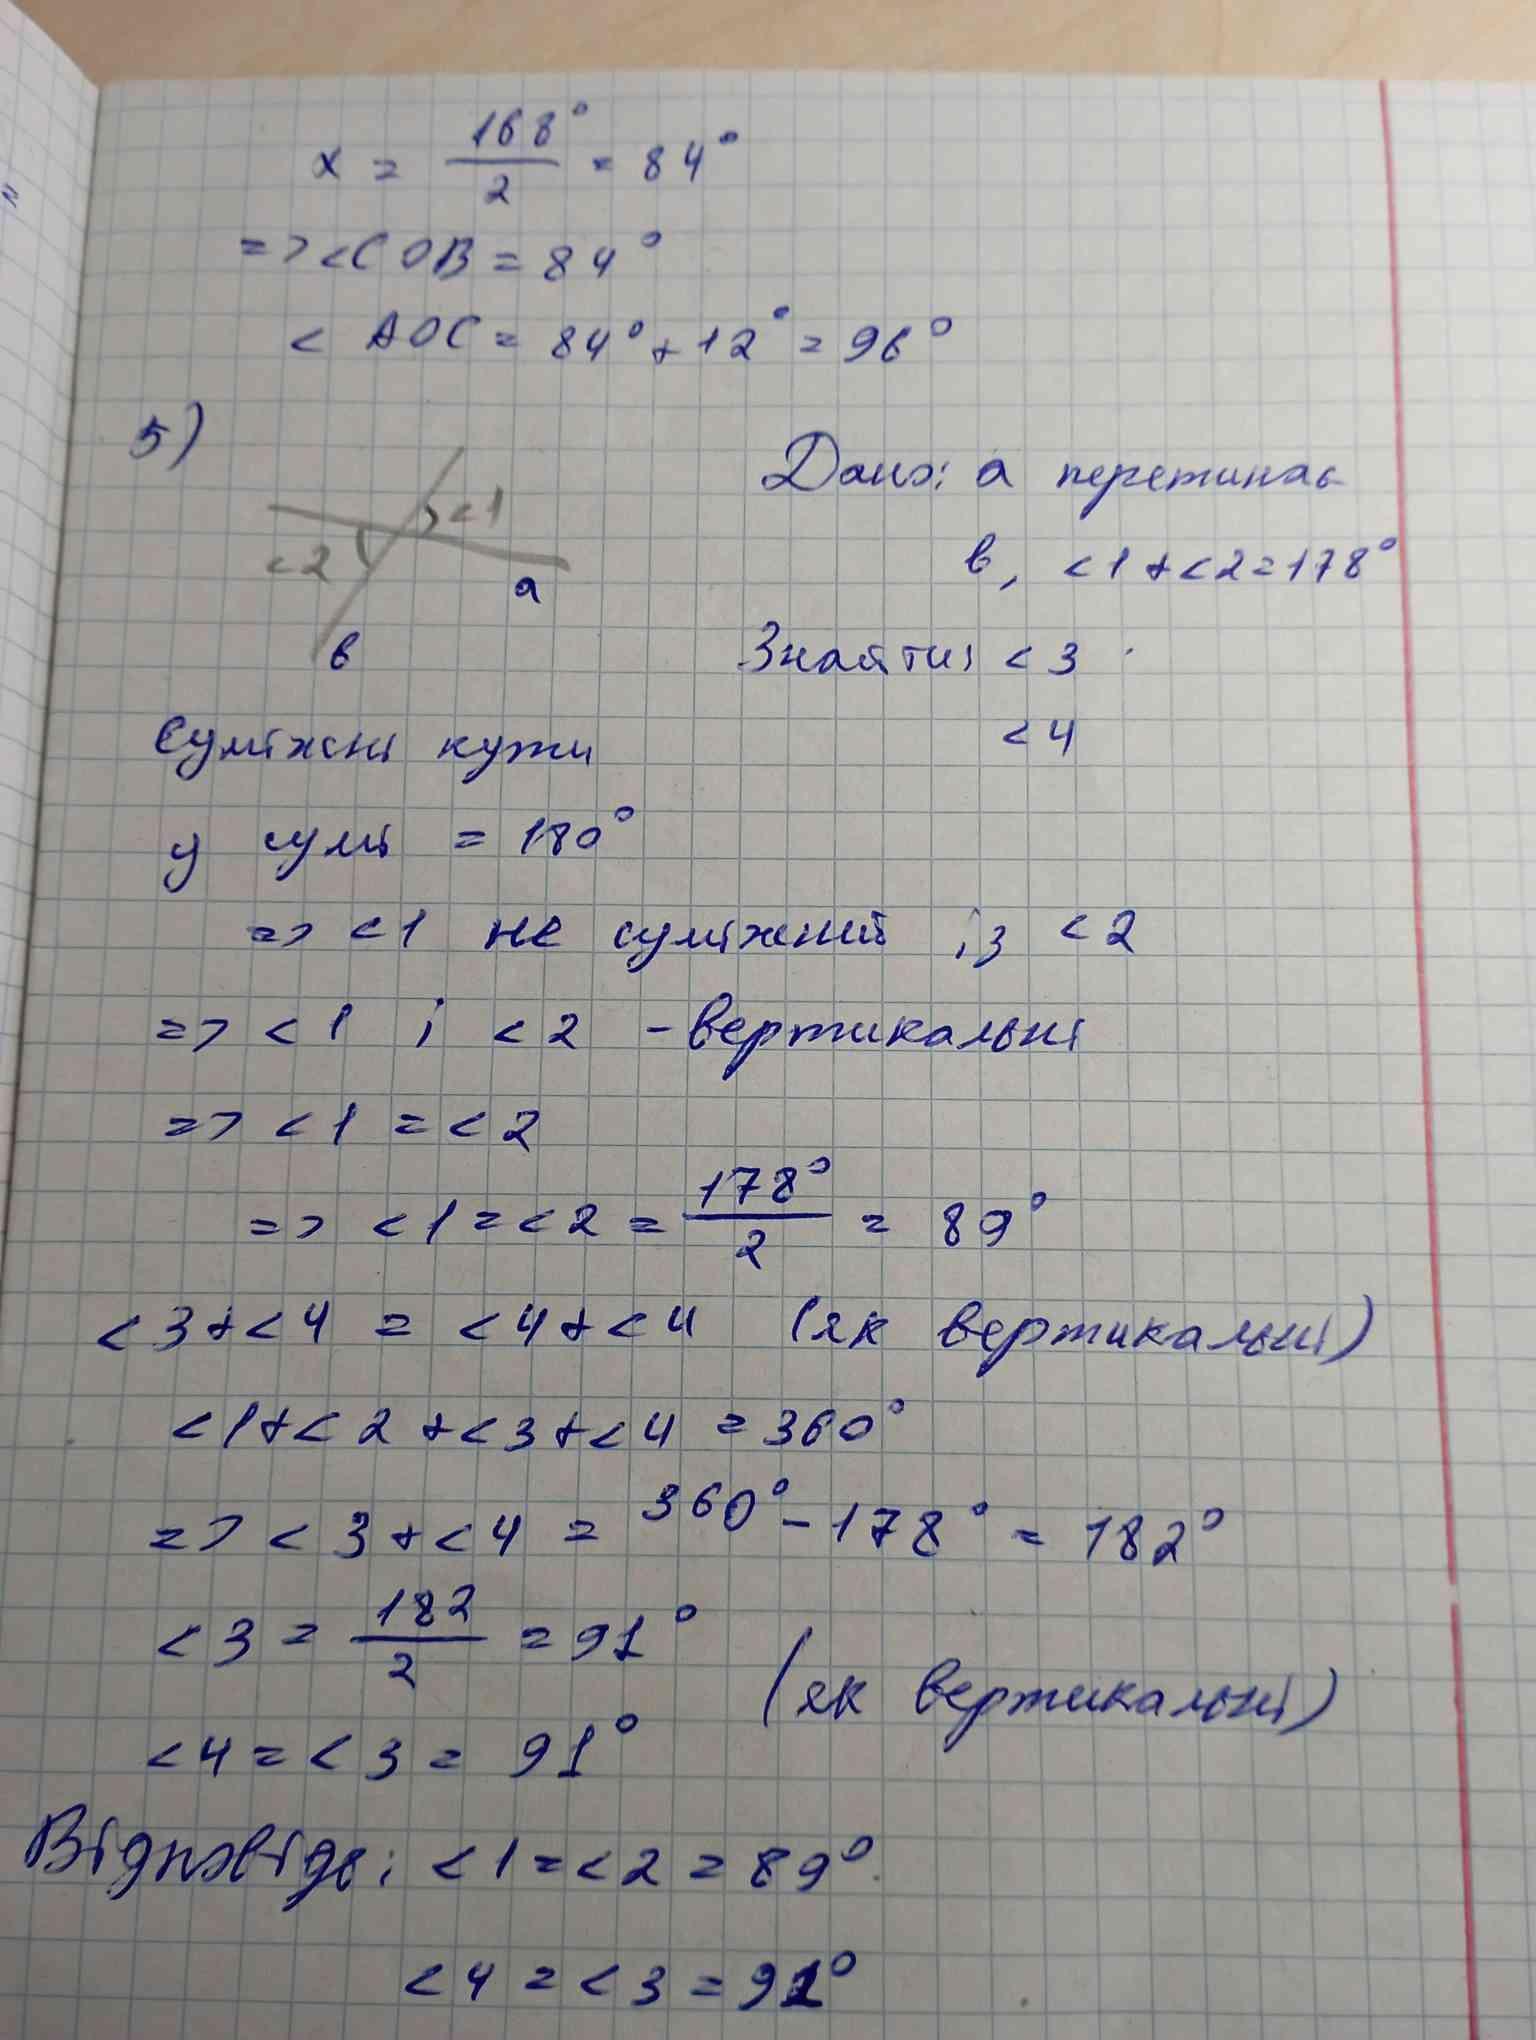 x = 168°/2 = 84°
=> <COB = 84°
< AOC = 84° + 12° = 96°
5)
<1
<2
a
в
Дано: a перетинає
в, <1 + <2 = 178°
Знайти: <3
<4
Суміжні кути
у сумі = 180°
=> <1 не суміжний із <2
=> <1 і <2 - вертикальні
=> <1 = <2
=> <1 = <2 = 178°/2 = 89°
<3 + <4 = <4 + <4 (як вертикальні)
<1 + <2 + <3 + <4 = 360°
=> <3 + <4 = 360° - 178° = 182°
<3 = 182/2 = 91°
(як вертикальні)
<4 = <3 = 91°
Відповідь: <1 = <2 = 89°.
<4 = <3 = 91°